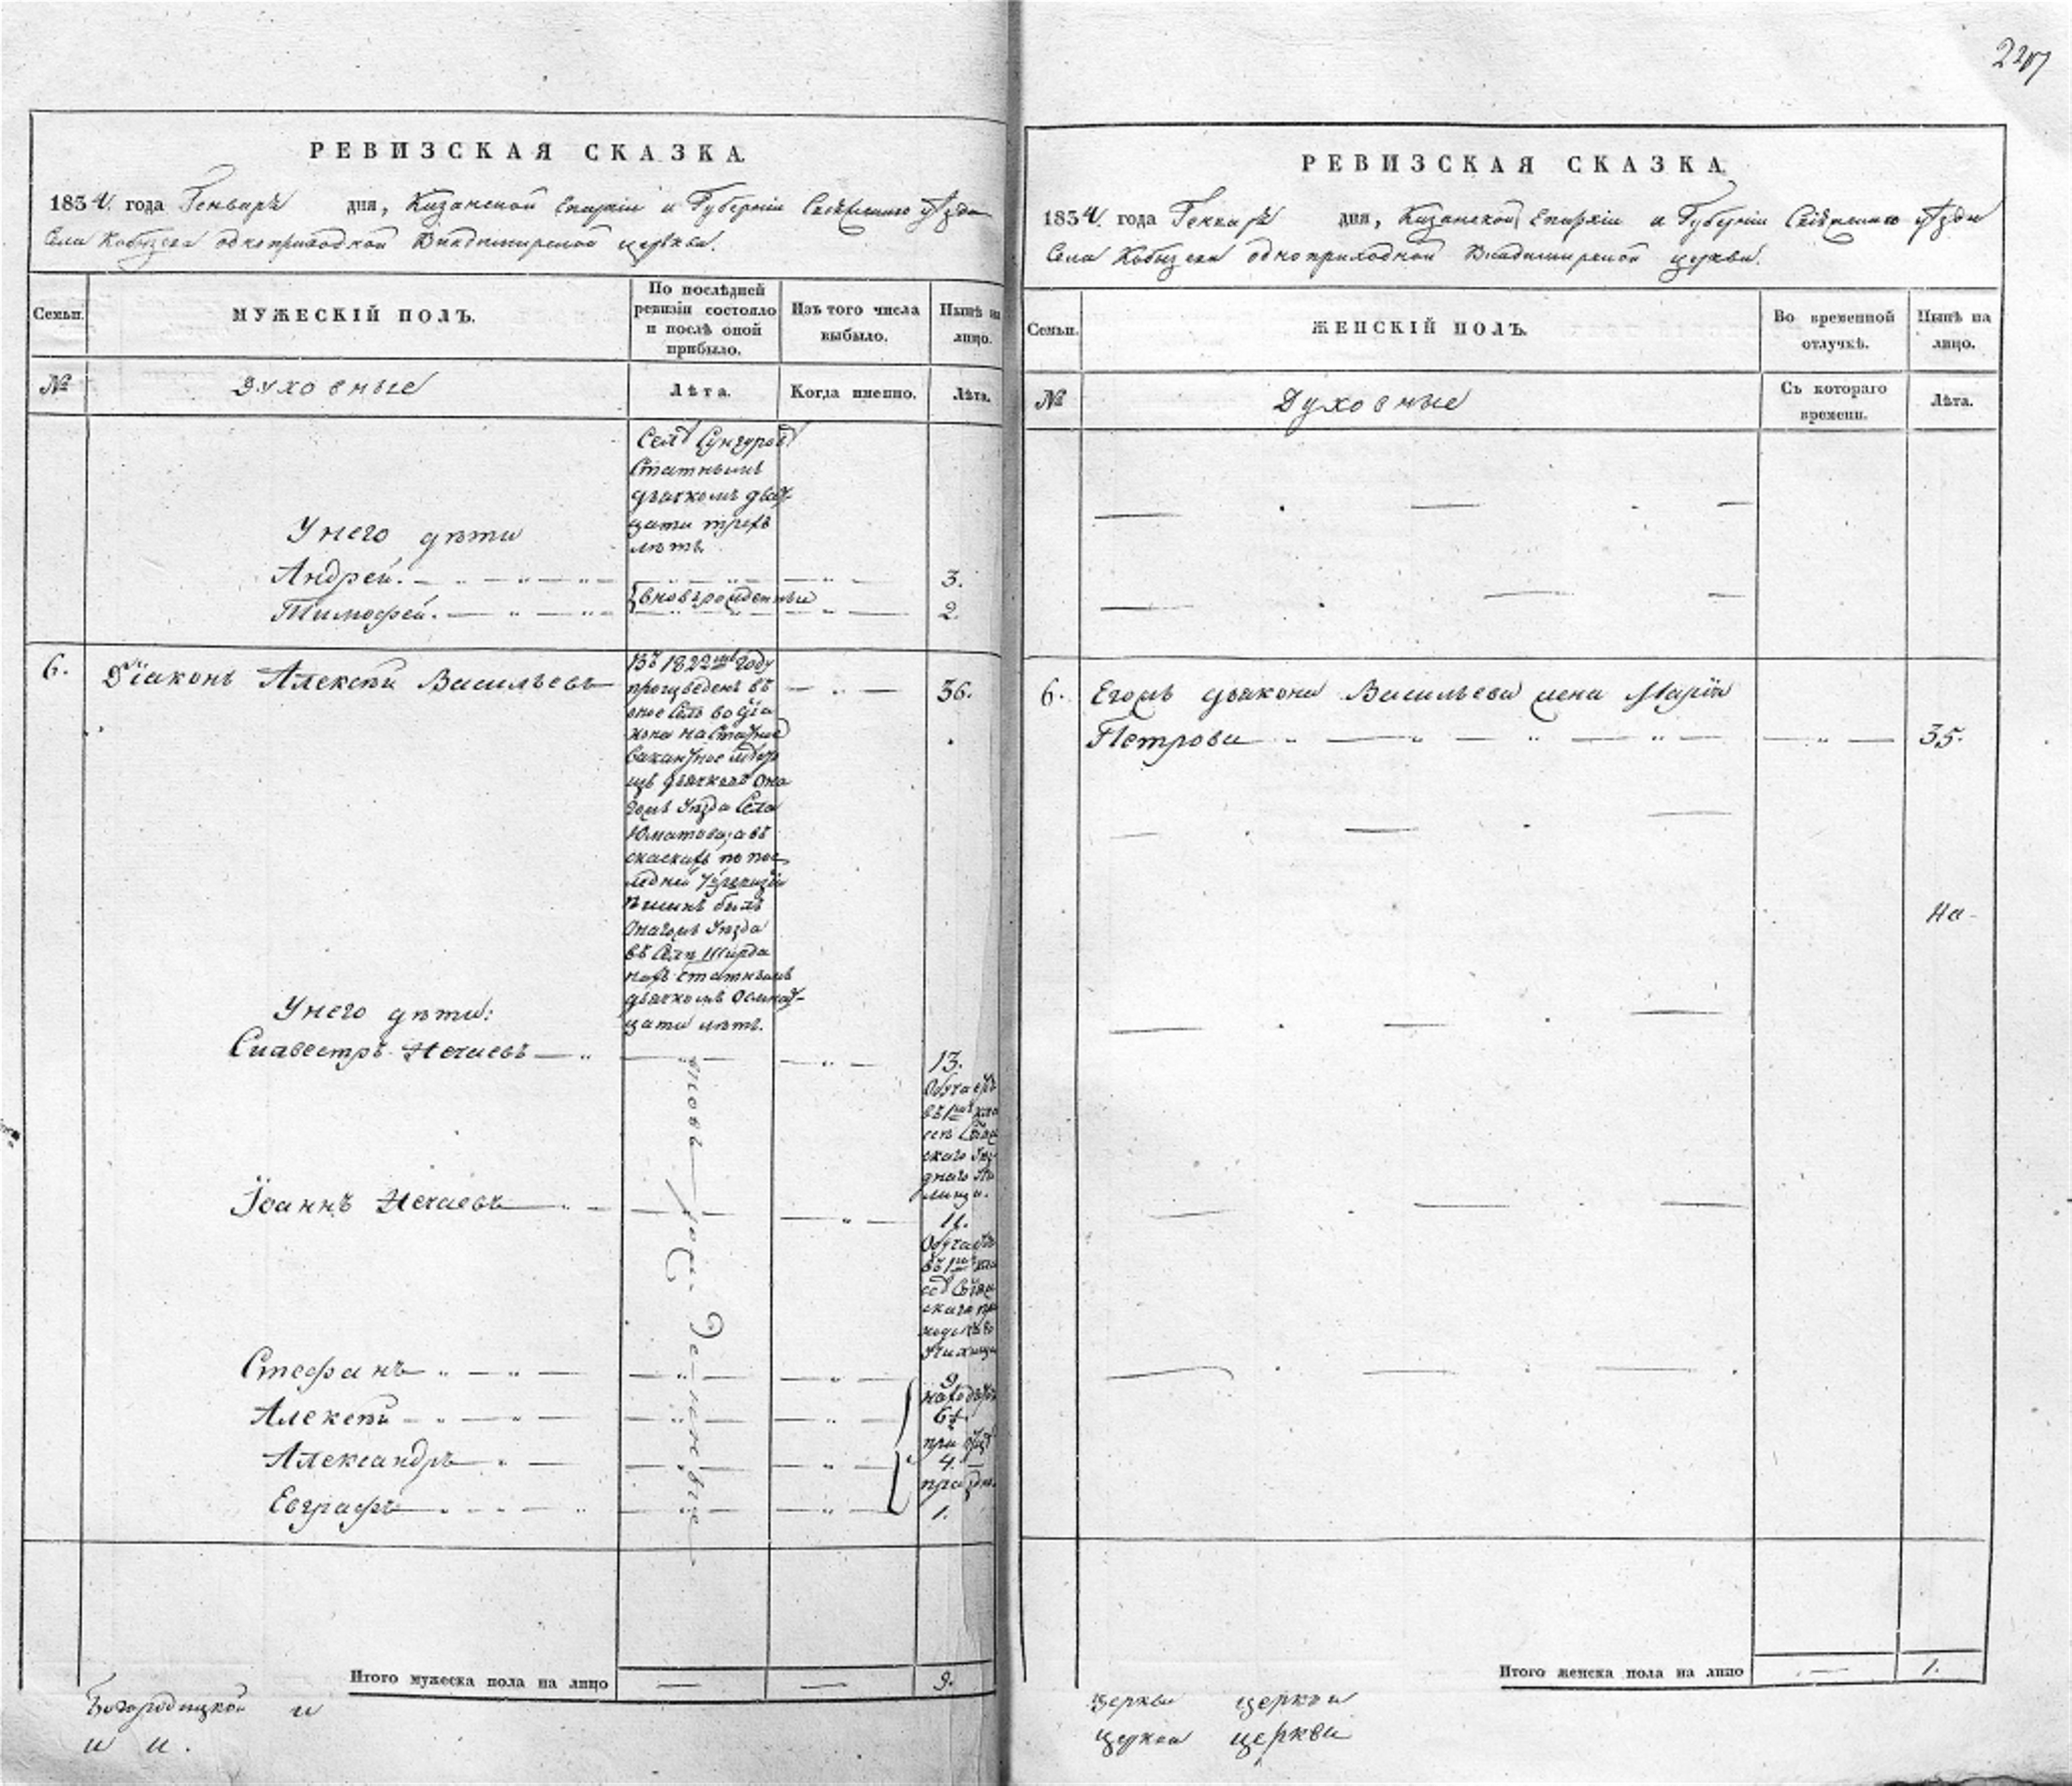 227
РЕВИЗСКАЯ СКАЗКА
1834. года Генваря дня, Казанской Епархіи и Губерніи Свіяжскаго уѣзда
Села Кобызева одноприходной Владимирской церкви.
Семьи.
МУЖЕСКІЙ ПОЛЪ.
По послѣдней ревизіи состояло и послѣ оной прибыло.
Изъ того числа выбыло.
Нынѣ на лицо.
№
Духовные
Лѣта.
Когда именно.
Лѣта.
Селѣ Сунгуровѣ
Статнымъ
дьячкомъ двад-
цати трехъ
лѣтъ.
У него дѣти
Андрей. 3.
{вновьрожденные
Тимофей. 2.
6. Діаконъ Алексѣй Васильевъ 36.
Въ 1822мъ году
произведенъ въ
оное Село во діа
кона на Статное
вакантное мѣсто
изъ дьячковъ она
гожъ Уѣзда Села
Юматова; а въ
скаскахъ по пос
ледней 7й ревизіи
писанъ былъ
Онагожъ Уѣзда
въ Селѣ Ширда
нахъ Статнымъ
дьячкомъ Осмнад-
цати лѣтъ.
У него дѣти:
Силвестръ Нечаевъ 13.
Обучается
въ 1мъ кла
ссѣ Свіяж
скаго Уѣз
днаго Учи
лища.
Іоаннъ Нечаевъ 11.
Обучается
въ 1мъ кла
ссѣ Свіяж
скаго при
ходскаго
Училища
Стефанъ 9
находятся
Алексѣй 6½
при отцѣ
Александръ 4.
праздн.
Евграфъ 1.
вновь рожденные
Итого мужеска пола на лицо 9.
Богородицкой и
и и.
РЕВИЗСКАЯ СКАЗКА
1834. года Генваря дня, Казанской Епархіи и Губерніи Свіяжскаго уѣзда
Села Кобызева одноприходной Владимирской церкви.
Семьи.
ЖЕНСКІЙ ПОЛЪ.
Во временной отлучкѣ.
Нынѣ на лицо.
№
Духовные
Съ котораго времени.
Лѣта.
6. Егожъ дьякона Васильева жена Марія
Петрова 35.
На
Итого женска пола на лицо 1.
Церкви церкви
церкви церкви